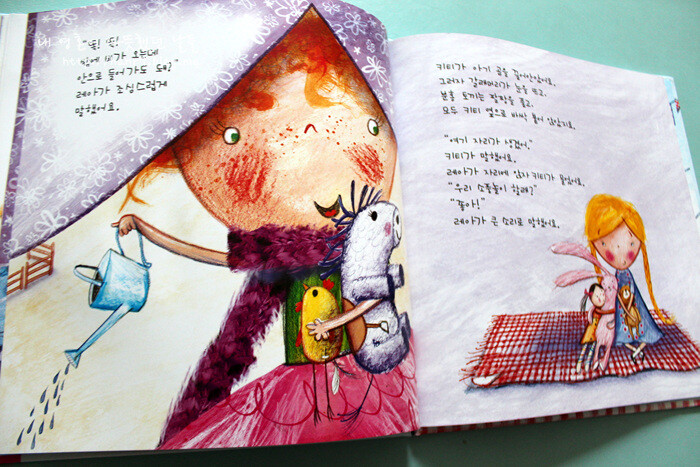 "똑! 똑!
밖에 비가 오는데
안으로 들어가도 돼?"
레아가 조심스럽게
말했어요.
키티가 아기 곰을 끌어안았어요.
그러자 갈래머리가 눈을 뜨고,
분홍 토끼는 팔짱을 풀고,
모두 키티 옆으로 바싹 붙어 앉았지요.
"여기 자리가 생겼어."
키티가 말했어요.
레아가 자리에 앉자 키티가 물었어요.
"우리 소풍놀이 할래?"
"좋아!"
레아가 큰 소리로 말했어요.